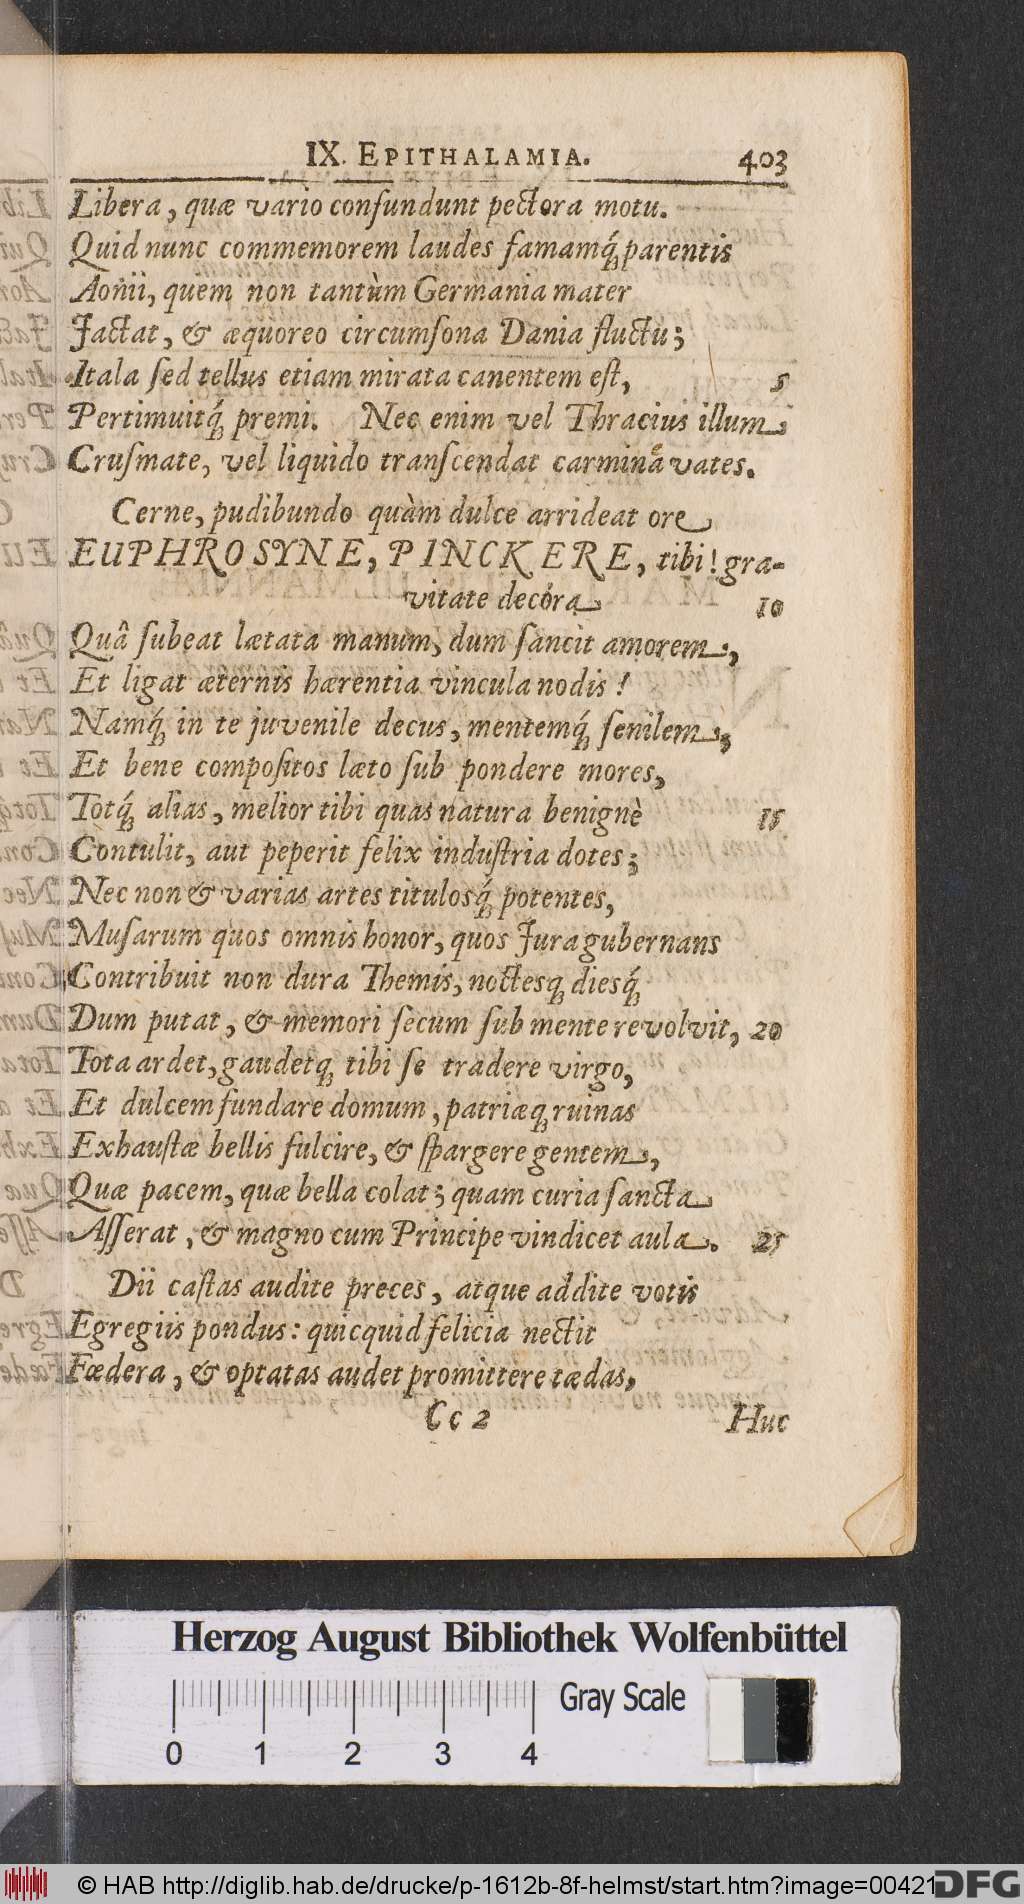 IX. EPITHALAMIA. 403
Libera, quæ vario confundunt pectora motu.
Quid nunc commemorem laudes famamq́; parentis
Aonii, quem non tantùm Germania mater
Jactat, & æquoreo circumſona Dania fluctu;
Itala ſed tellus etiam mirata canentem eſt, 5
Pertimuitq́; premi. Nec enim vel Thracius illum
Cruſmate, vel liquido tranſcendat carmina vates.
Cerne, pudibundo quàm dulce arrideat ore
EUPHROSYNE, PINCKERE, tibi! gra-
vitate decóra 10
Quâ ſubeat lætata manum, dum ſancit amorem,
Et ligat æternis hærentia vincula nodis!
Namq́; in te juvenile decus, mentemq́; ſenilem,
Et bene compoſitos læto ſub pondere mores,
Totq́; alias, melior tibi quas natura benignè 15
Contulit, aut peperit felix induſtria dotes;
Nec non & varias artes titulosq́; potentes,
Muſarum quos omnis honor, quos Jura gubernans
Contribuit non dura Themis, noctesq; diesq́;
Dum putat, & memori ſecum ſub mente revolvit, 20
Tota ardet, gaudetq; tibi ſe tradere virgo,
Et dulcem fundare domum, patriæq; ruinas
Exhauſtæ bellis fulcire, & ſpargere gentem,
Quæ pacem, quæ bella colat; quam curia ſancta
Aſſerat, & magno cum Principe vindicet aula. 25
Dii caſtas audite preces, atque addite votis
Egregiis pondus: quicquid felicia nectit
Fœdera, & optatas audet promittere tædas,
Cc 2 Huc
Herzog August Bibliothek Wolfenbüttel
Gray Scale
0 1 2 3 4
© HAB http://diglib.hab.de/drucke/p-1612b-8f-helmst/start.htm?image=00421
DFG